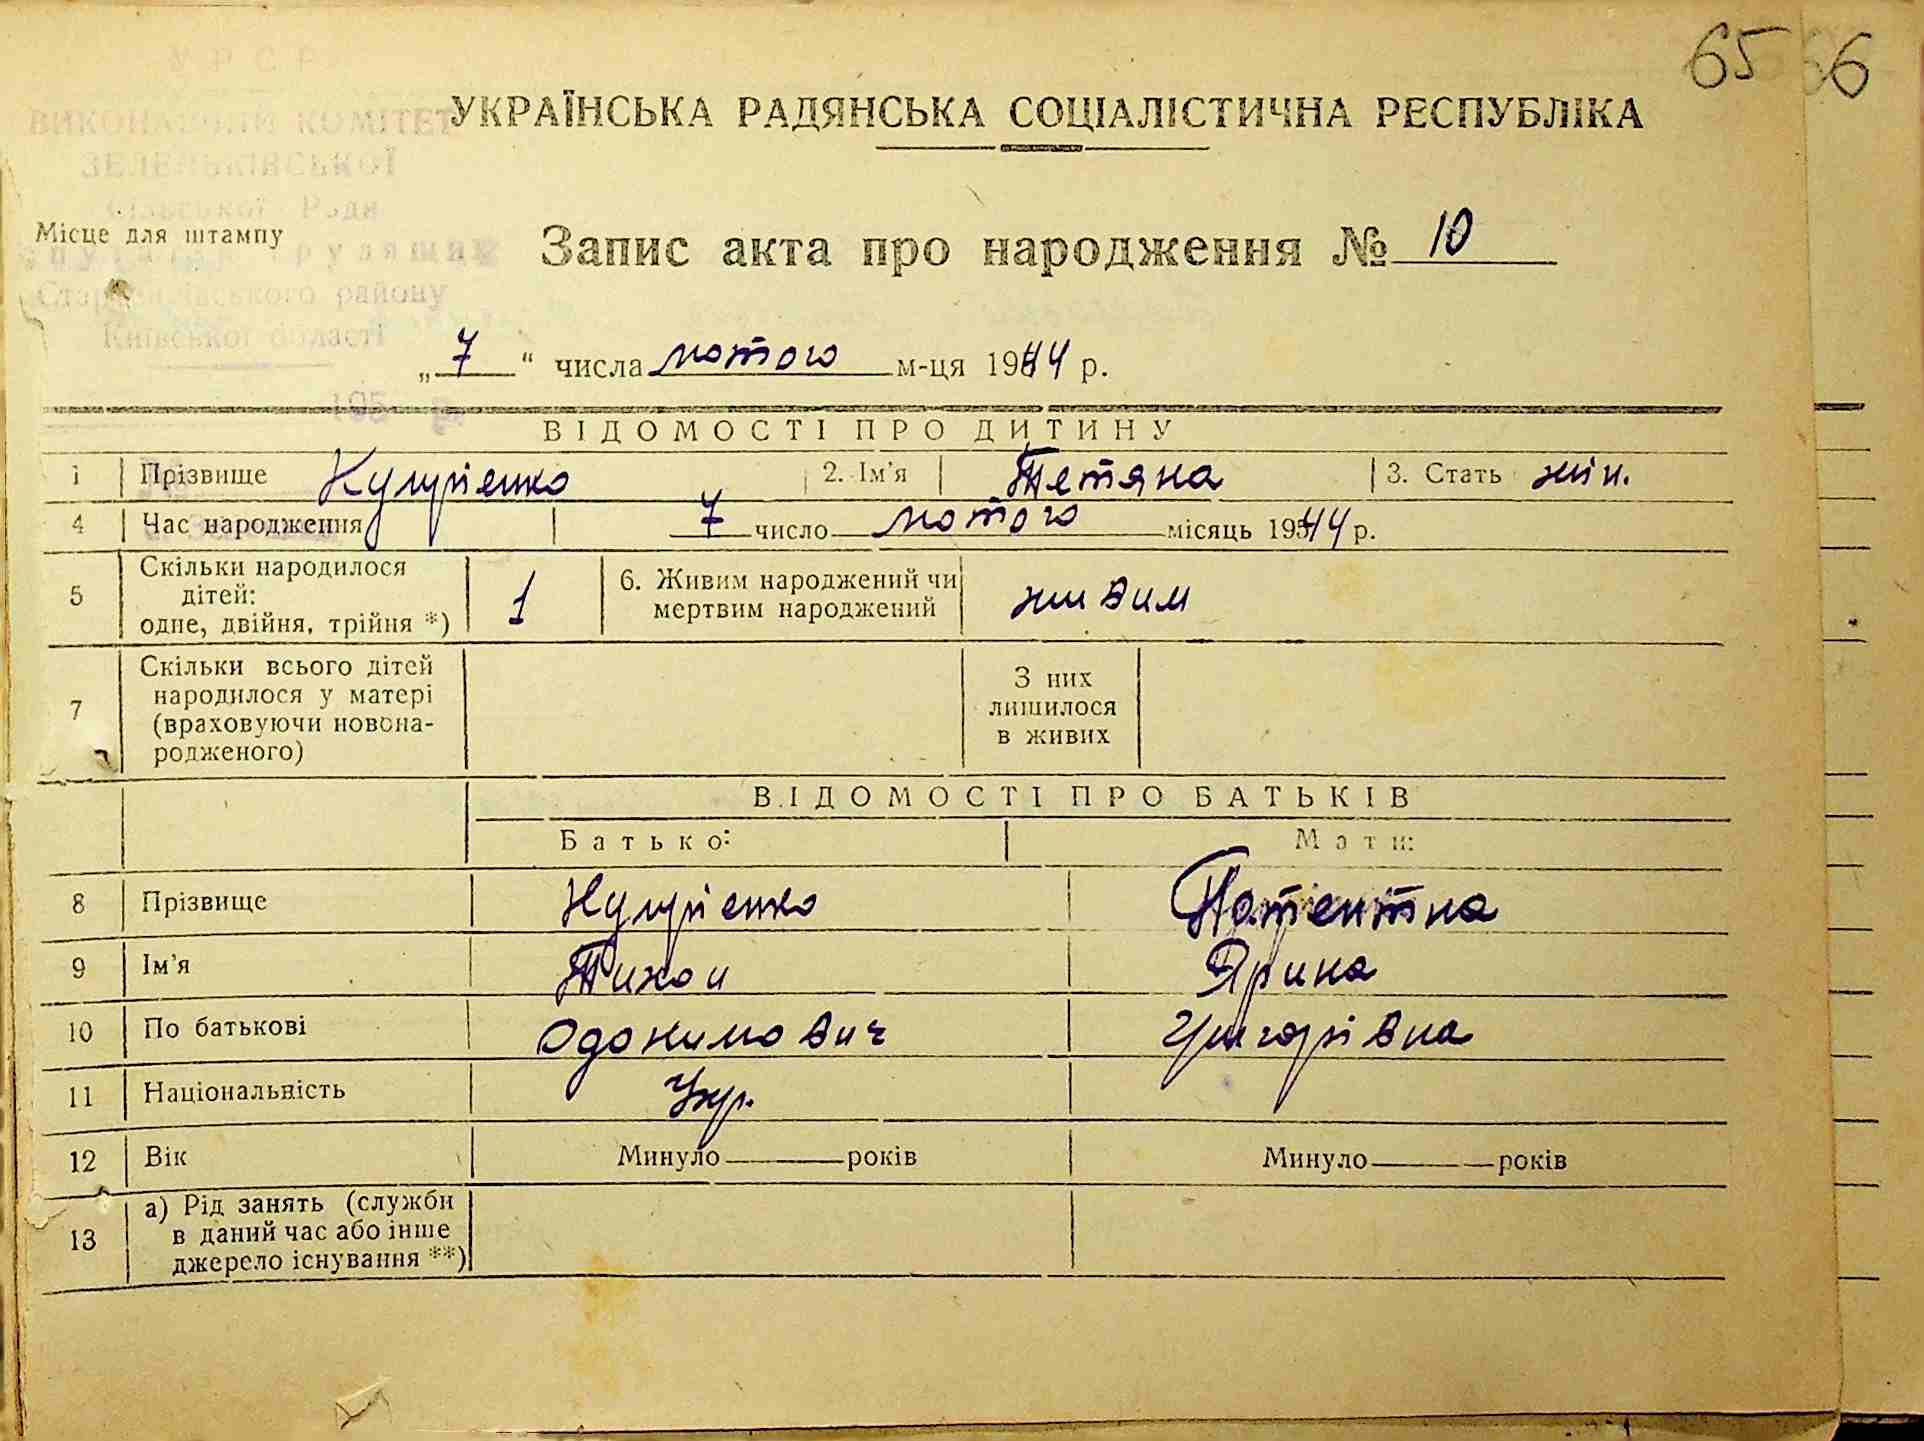 65 66
УРСР
ВИКОНАВЧИЙ КОМІТЕТ
ЗЕЛЕНЬКІВСЬКОЇ
Сільської Ради
УКРАЇНСЬКА РАДЯНСЬКА СОЦІАЛІСТИЧНА РЕСПУБЛІКА
Місце для штампу
Київської області
Запис акта про народження № 10
„7“ числа лютого м-ця 1944 р.
195 р.
ВІДОМОСТІ ПРО ДИТИНУ
1 Прізвище 2. Ім’я Тетяна 3. Стать жін.
4 Час народження 7 число лютого місяць 1944 р.
5 Скільки народилося
дітей:
одне, двійня, трійня *) 1 6. Живим народжений чи
мертвим народжений живим
7 Скільки всього дітей
народилося у матері
(враховуючи новона-
родженого) З них
лишилося
в живих
ВІДОМОСТІ ПРО БАТЬКІВ
Батько: Мати:
8 Прізвище
9 Ім’я Тихон Ярина
10 По батькові Григорівна
11 Національність Укр.
12 Вік Минуло років Минуло років
13 а) Рід занять (служби
в даний час або інше
джерело існування **)